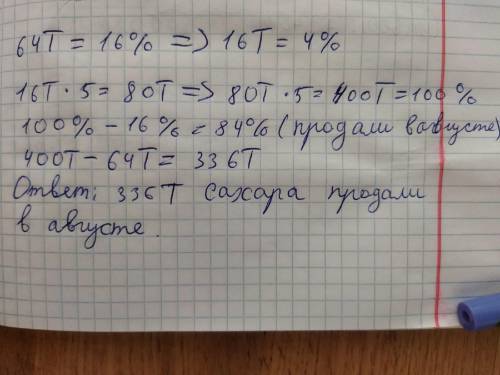 64Т = 16% => 16Т = 4%
16Т · 5 = 80Т => 80Т · 5 = 400Т = 100%
100% - 16% = 84% (продали в августе)
400Т - 64Т = 336Т
Ответ: 336Т сахара продали
в августе.